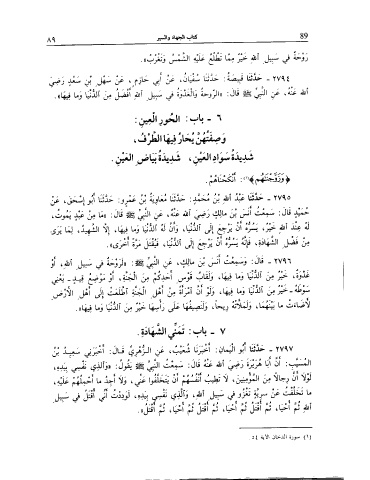 89 كتاب الجهاد والسير ٨٩
رَوْحَةٌ في سَبِيلِ اللهِ خَيْرٌ مِمَّا تَطْلُعُ عَلَيْهِ الشَّمْسُ وَتَغْرُبُ».
٢٧٩٤ - حَدَّثَنَا قَبِيصَةُ: حَدَّثَنَا سُفْيَانُ، عَنْ أَبي حَازِمٍ، عَنْ سَهْلِ بْنِ سَعْدٍ رَضِيَ
اللهُ عَنْهُ، عَنِ النَّبِيِّ ﷺ قَالَ: «الرَّوحَةُ وَالْغَدْوَةُ في سَبِيلِ اللهِ أَفْضَلُ مِنَ الدُّنْيَا وَمَا فِيهَا».
٦ - باب: الحُورِ العِينِ:
وَصِفَتُهُنَّ يُحَارُ فِيهَا الطَّرْفُ،
شَدِيدَةُ سَوَادِ العَيْنِ، شَدِيدَةُ بَيَاضِ العَيْنِ.
﴿وَزَوَّجْنَاهُمْ﴾(١): أَنْكَحْنَاهُمْ.
٢٧٩٥ - حَدَّثَنَا عَبْدُ اللهِ بْنُ مُحَمَّدٍ: حَدَّثَنَا مُعَاوِيَةُ بْنُ عَمْرٍو: حَدَّثَنَا أَبُو إِسْحَقَ، عَنْ
حُمَيْدٍ قَالَ: سَمِعْتُ أَنَسَ بْنَ مَالِكٍ رَضِيَ اللهُ عَنْهُ، عَنِ النَّبِيِّ ﷺ قَالَ: «مَا مِنْ عَبْدٍ يَمُوتُ،
لَهُ عِنْدَ اللهِ خَيْرٌ، يَسُرُّهُ أَنْ يَرْجِعَ إِلَى الدُّنْيَا، وَأَنَّ لَهُ الدُّنْيَا وَمَا فِيهَا، إِلَّا الشَّهِيدَ، لِمَا يَرَى
مِنْ فَضْلِ الشَّهَادَةِ، فَإِنَّهُ يَسُرُّهُ أَنْ يَرْجِعَ إِلَى الدُّنْيَا، فَيُقْتَلَ مَرَّةً أُخْرَى».
٢٧٩٦ - قَالَ: وَسَمِعْتُ أَنَسَ بْنَ مَالِكٍ، عَنِ النَّبِيِّ ﷺ: «لَرَوْحَةٌ في سَبِيلِ اللهِ، أَوْ
غَدْوَةٌ، خَيْرٌ مِنَ الدُّنْيَا وَمَا فِيهَا، وَلَقَابُ قَوْسِ أَحَدِكُمْ مِنَ الجَنَّةِ، أَوْ مَوْضِعُ قِيدٍ - يَعْنِي
سَوْطَهُ - خَيْرٌ مِنَ الدُّنْيَا وَمَا فِيهَا، وَلَوْ أَنَّ امْرَأَةً مِنْ أَهْلِ الجَنَّةِ اطَّلَعَتْ إِلَى أَهْلِ الأَرْضِ
لأَضَاءَتْ مَا بَيْنَهُمَا، وَلَمَلأَتْهُ رِيحاً، وَلَنَصِيفُهَا عَلَى رَأْسِهَا خَيْرٌ مِنَ الدُّنْيَا وَمَا فِيهَا».
٧ - باب: تَمَنِّي الشَّهَادَةِ.
٢٧٩٧ - حَدَّثَنَا أَبُو الْيَمَانِ: أَخْبَرَنَا شُعَيْبٌ، عَنِ الزُّهْرِيِّ قَالَ: أَخْبَرَنِي سَعِيدُ بْنُ
المُسَيَّبِ: أَنَّ أَبَا هُرَيْرَةَ رَضِيَ اللهُ عَنْهُ قَالَ: سَمِعْتُ النَّبِيَّ ﷺ يَقُولُ: «وَالَّذِي نَفْسِي بِيَدِهِ،
لَوْلاَ أَنَّ رِجالاً مِنَ المُؤْمِنِينَ، لاَ تَطِيبُ أَنْفُسُهُمْ أَنْ يَتَخَلَّفُوا عَنِّي، وَلاَ أَجِدُ مَا أَحْمِلُهُمْ عَلَيْهِ،
مَا تَخَلَّفْتُ عَنْ سَرِيَّةٍ تَغْزُو في سَبِيلِ اللهِ، وَالَّذِي نَفْسِي بِيَدِهِ، لَوَدِدْتُ أَنِّي أُقْتَلُ في سَبِيلِ
اللهِ ثُمَّ أُحْيَا، ثُمَّ أُقْتَلُ ثُمَّ أُحْيَا، ثُمَّ أُقْتَلُ ثُمَّ أُحْيَا، ثُمَّ أُقْتَلُ».
(١) سورة الدخان الآية ٥٤